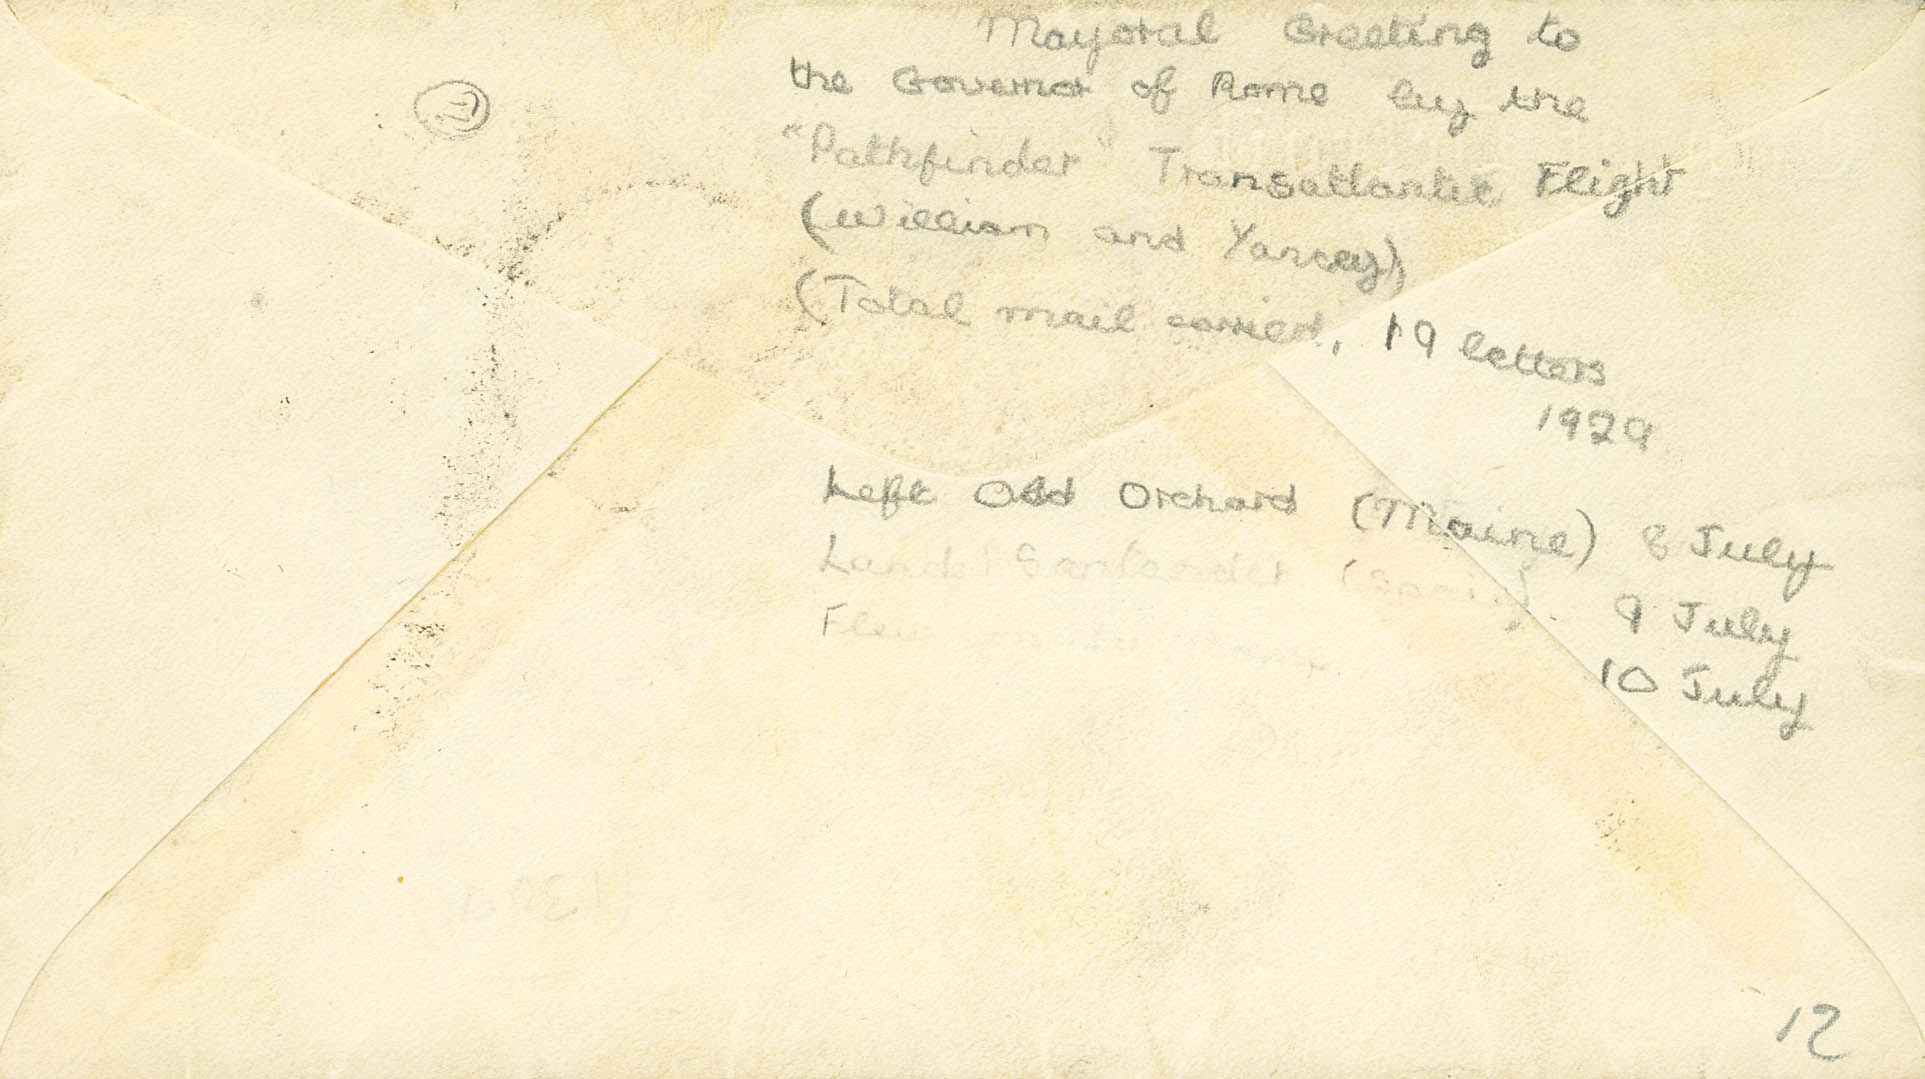 Mayoral Greeting to
the Governor of Rome by the
"Pathfinder" Transatlantic Flight
(William and Yancey)
(Total mail carried, 19 letters
1929
Left Old Orchard (Maine) 8 July
Landed Santander (Spain) 9 July
Flew 10 July
12